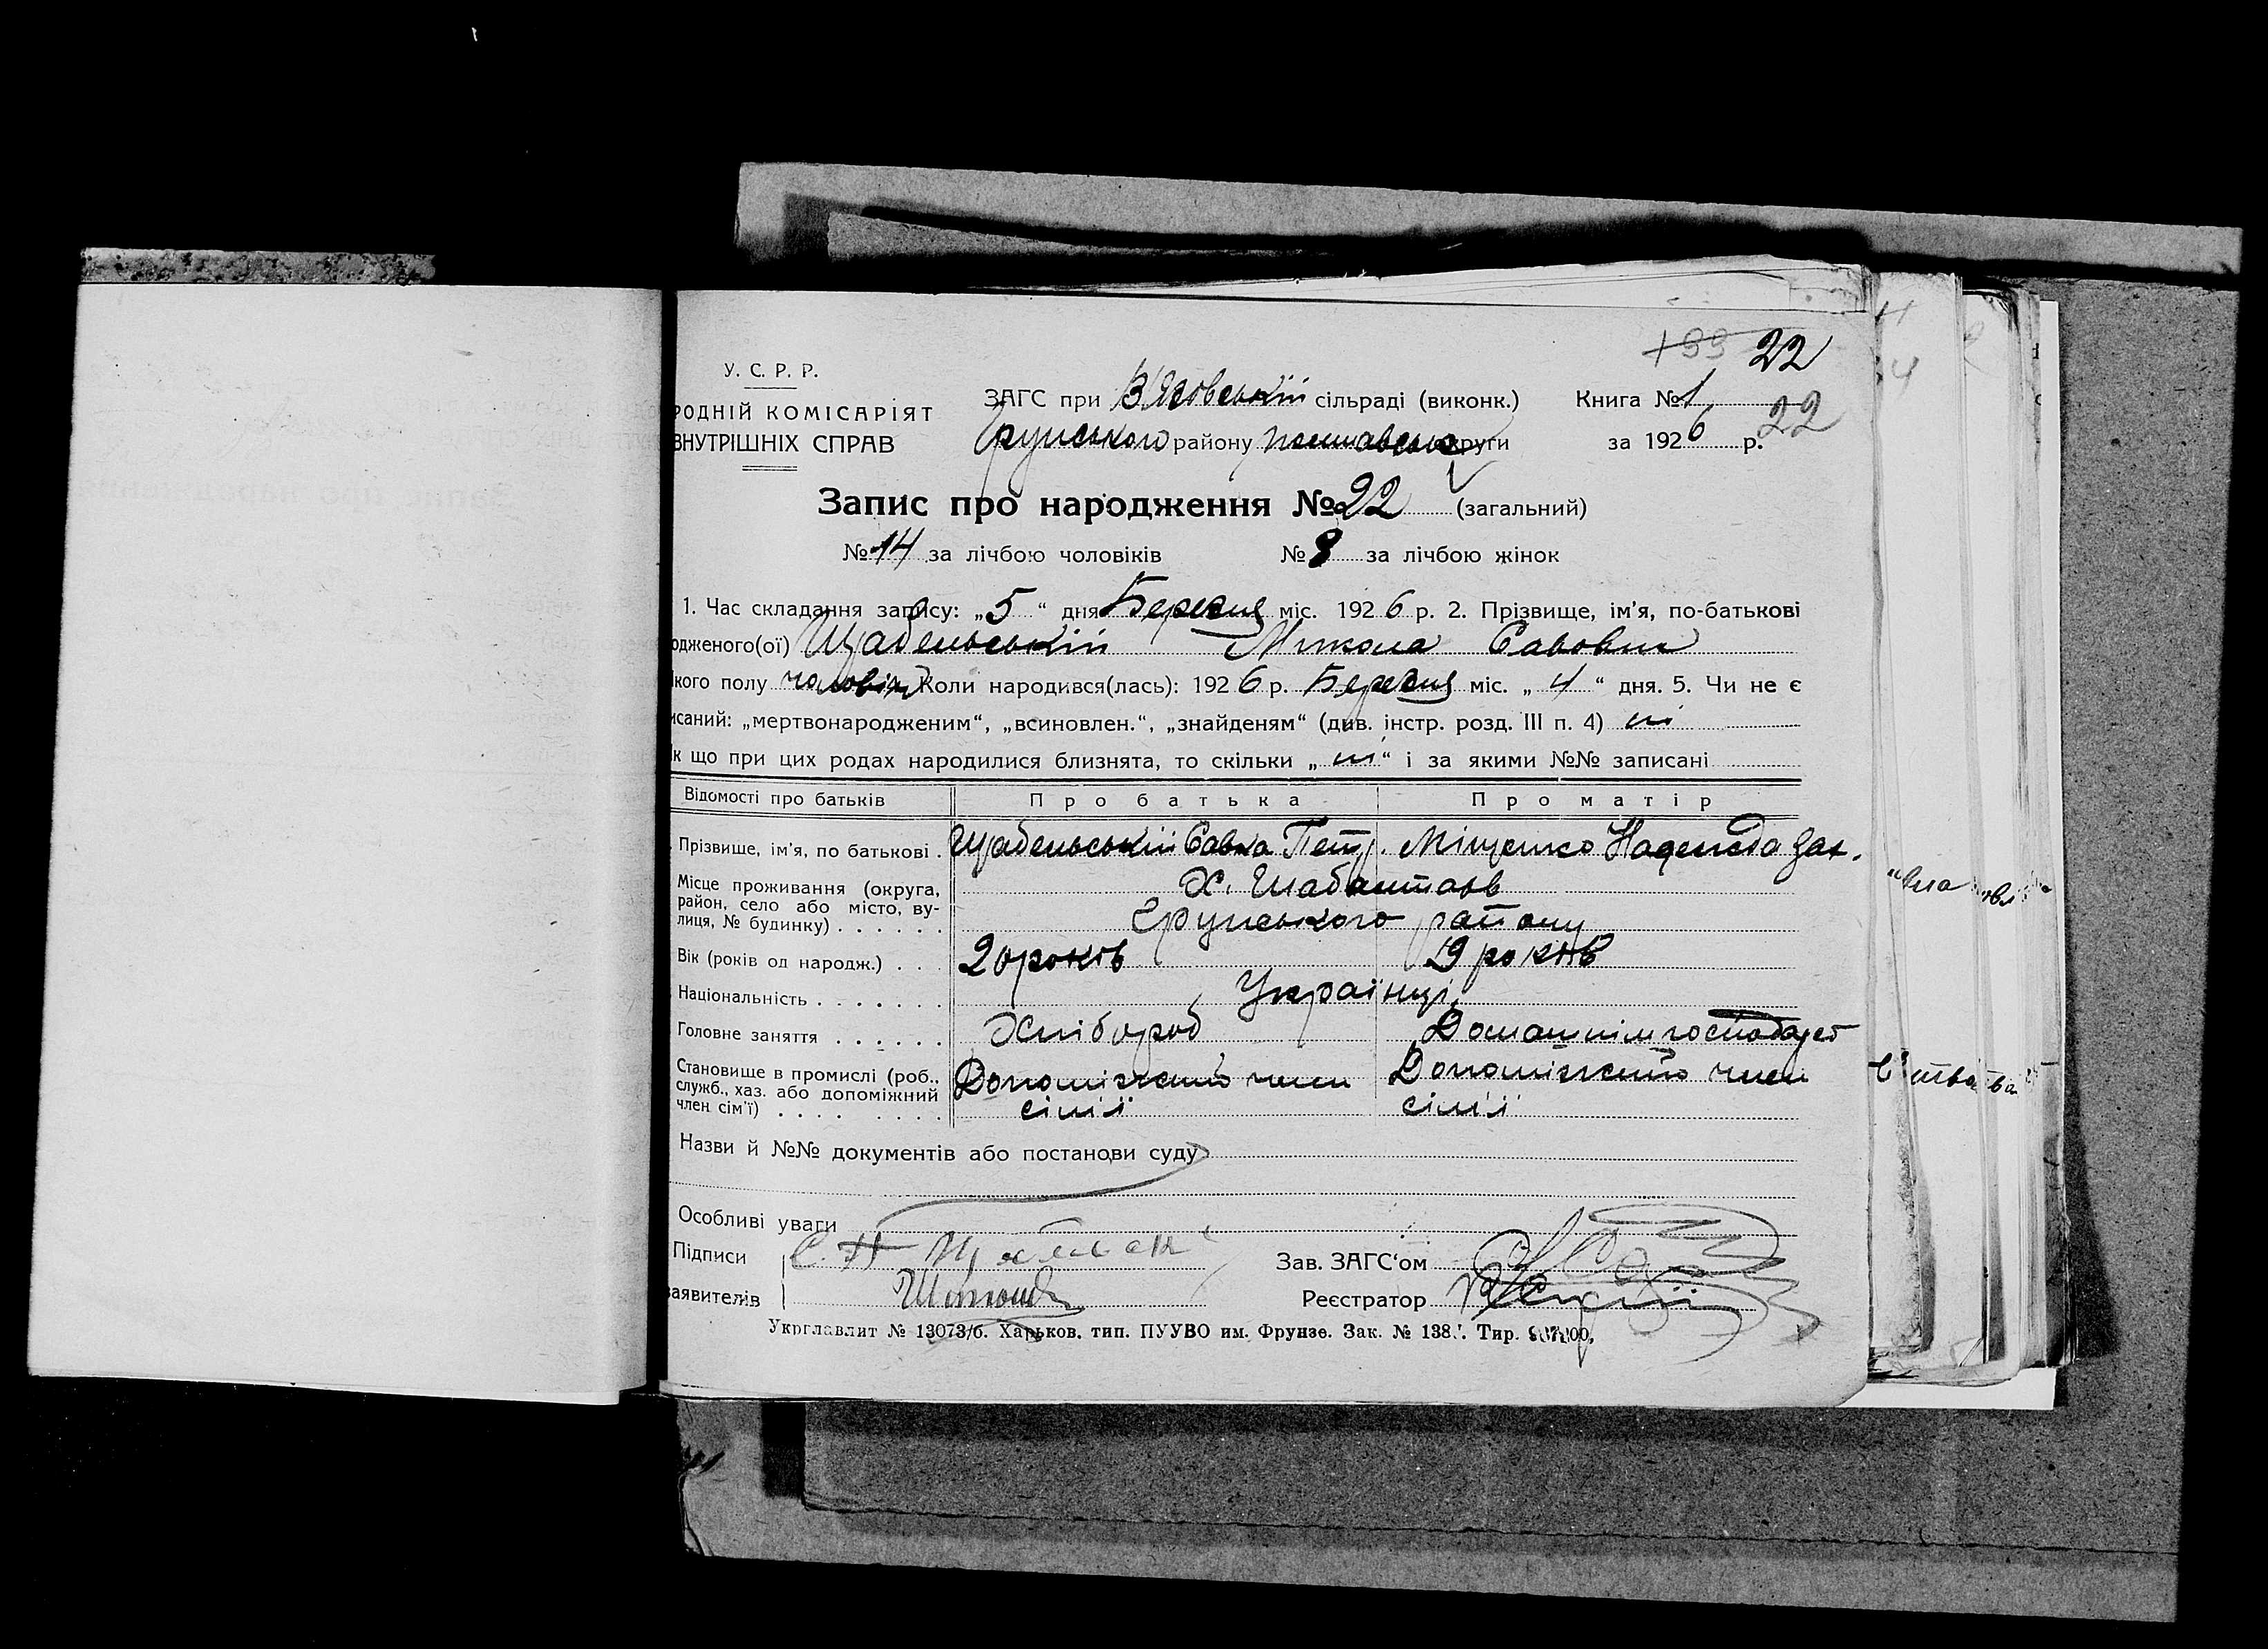 199 22
У. С. Р. Р.
РОДНІЙ КОМІСАРІЯТ
ВНУТРІШНІХ СПРАВ
ЗАГС при В'язовській сільраді (виконк.) Книга № 1
Грунського району Полтавськ округи за 1926 р. 22
Запис про народження № 22 (загальний)
№ 14 за лічбою чоловіків № 8 за лічбою жінок
1. Час складання запису: „5“ дня Березня міс. 1926 р. 2. Прізвище, ім'я, по-батькові
одженого(ої) Щабельський Микола Савович
кого полу чоловіч Коли народився(лась): 1926 р. Березня міс. „4“ дня. 5. Чи не є
исаний: „мертвонародженим“, „всиновлен.“, „знайденям“ (див. інстр. розд. III п. 4) ні
к що при цих родах народилися близнята, то скільки „ні“ і за якими №№ записані
Відомості про батьків Про батька Про матір
Прізвище, ім'я, по батькові . Щабельський Савка Петр. Міщенко Надежда Зах.
Місце проживання (округа, район, село або місто, вулиця, № будинку) . . . . . . Х. Шабалтаїв
Грунського району
Вік (років од народж.) . . . 20 років 19 років
Національність . . . . . . . Українці
Головне заняття . . . . . . Хлібороб Домашнім господарст
Становище в промислі (роб., служб., хаз. або допоміжний член сім'ї) . . . . . . . . Допоміжний член сімї Допоміжний член сімї
Назви й №№ документів або постанови суду
Особливі уваги
Підписи С. П. Зав. ЗАГС'ом
заявителів Реєстратор
Укрглавлит № 13073/б. Харьков. тип. ПУУВО им. Фрунзе. Зак. № 138 Тир.